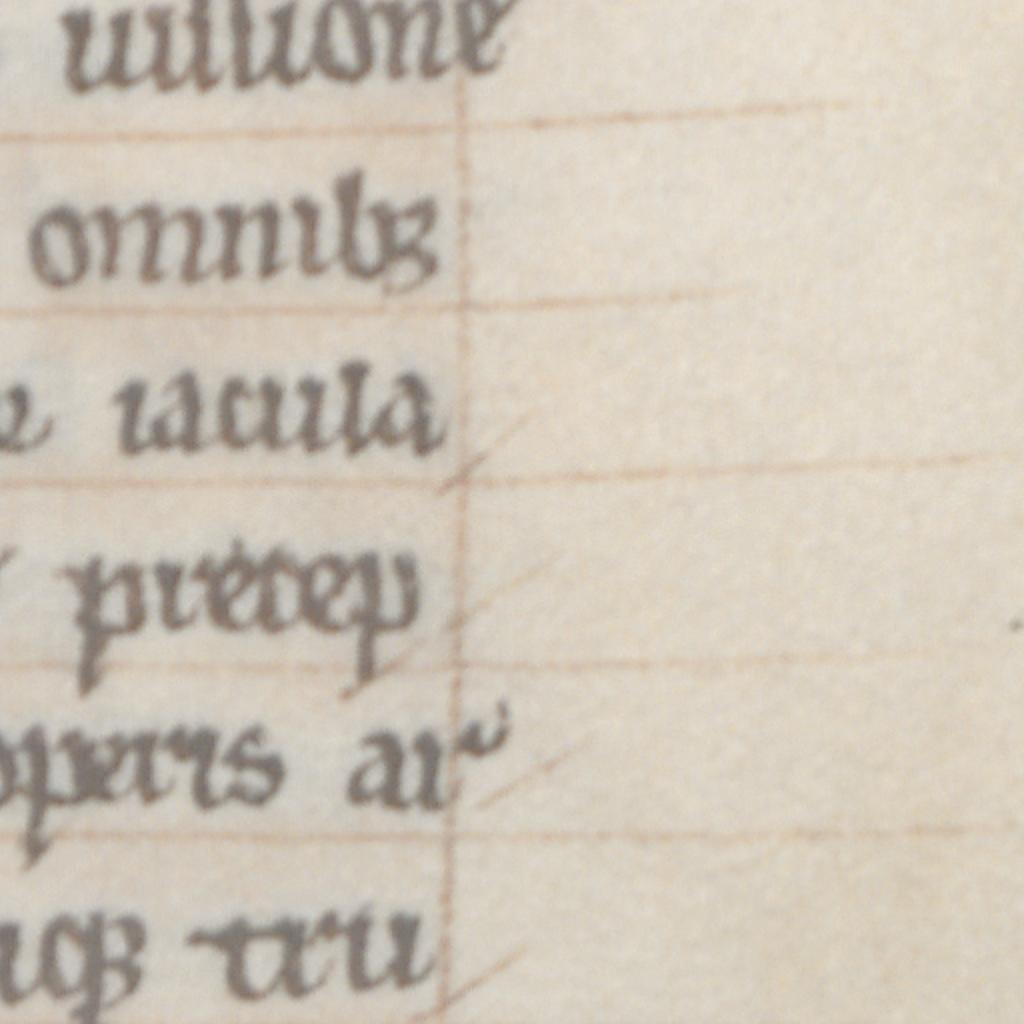 uisione
omnibꝫ
iacula
precep
operis aıͥ
qꝫ tru